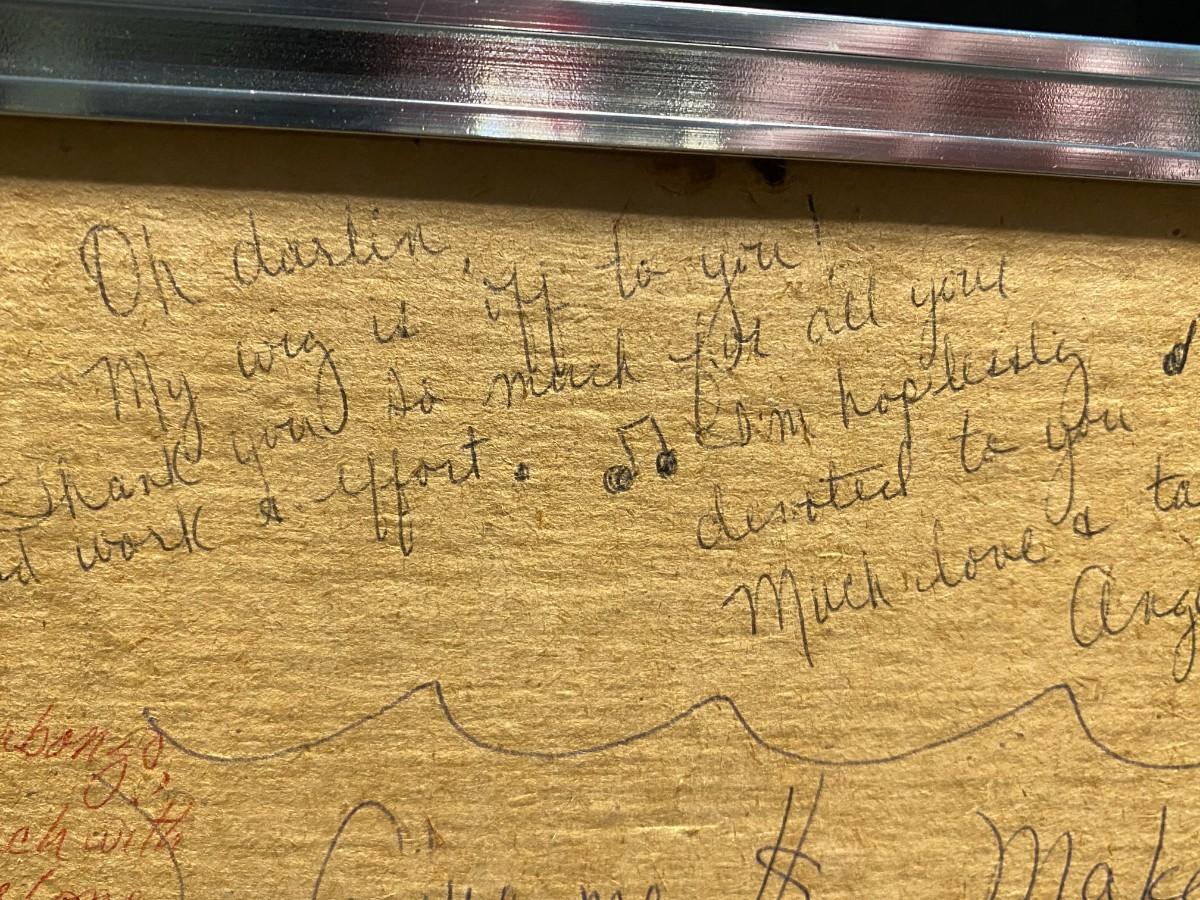 Oh darlin,
My wig is off to you!
Thank you so much for all your
work & effort. ♫ I'm hoplessly
devoted to you
Much love &
Ang
ch with
me $ Make